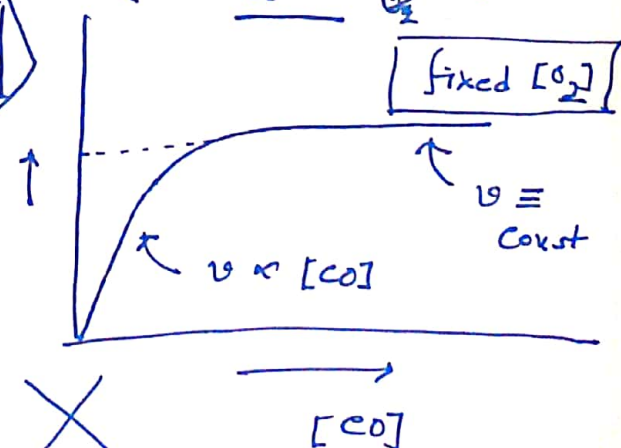 fixed [O₂]
v ≡
const
v ∝ [CO]
[CO]